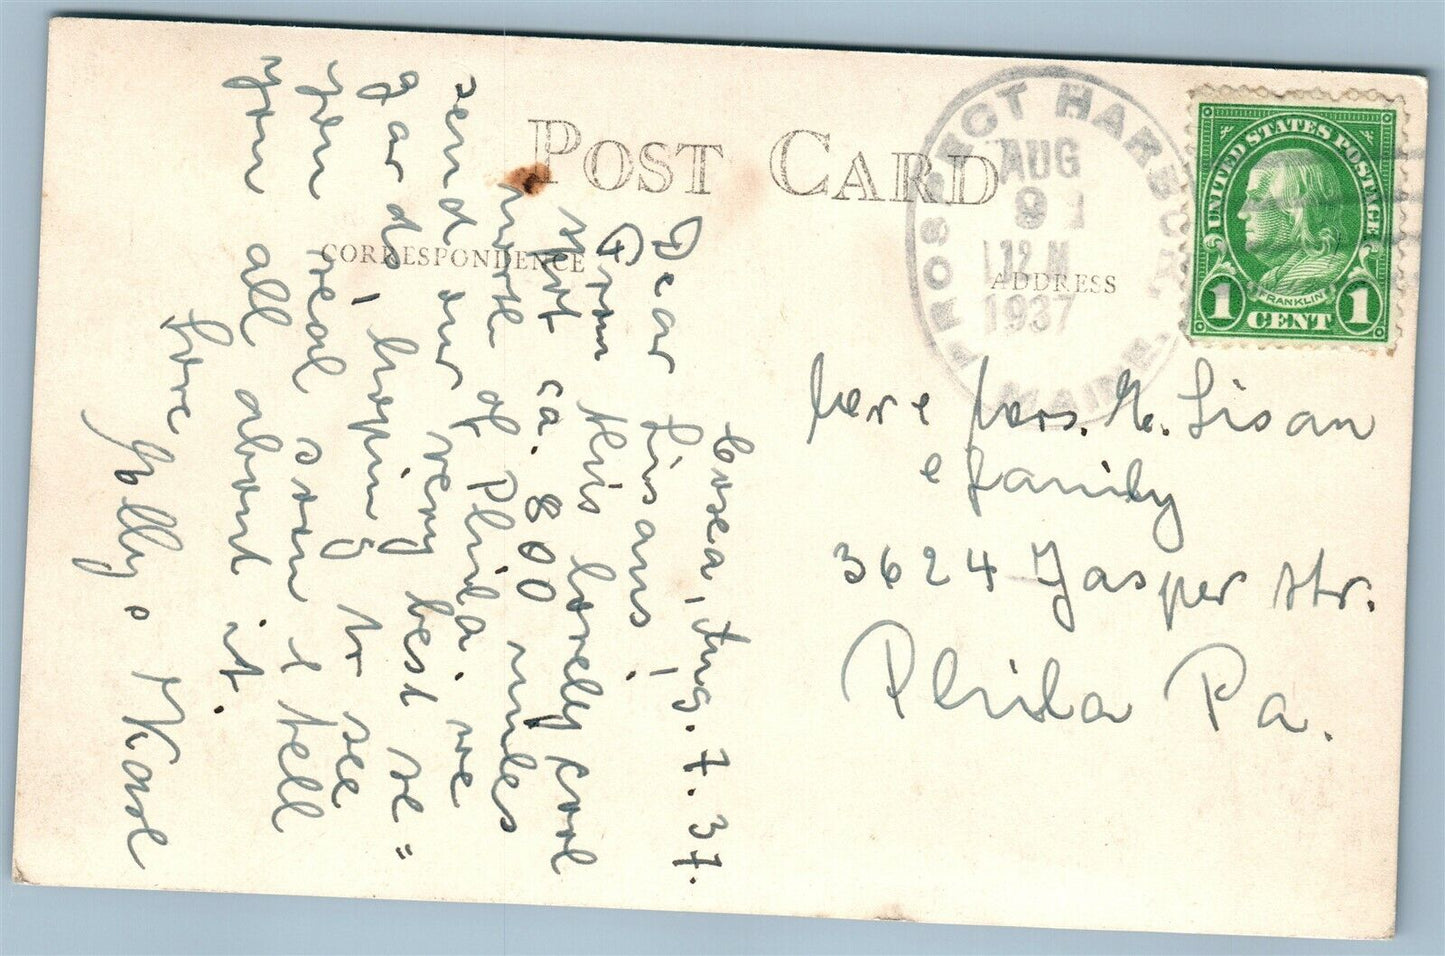 POST CARD
CORRESPONDENCE
ADDRESS
PROSPECT HARBOR, MAINE.
AUG
9
12 M
1937
UNITED STATES POSTAGE
FRANKLIN
1 CENT 1
Corea, Aug. 7. 37.
Dear Lisans,
From this lovely cool
spot ca. 800 miles
more of Phila. we
send our very best re=
gards, hoping to see
you real soon & tell
you all about it.
Love
Kase
Mrs. Lisan
& family
3624 Jasper Str.
Phila Pa.